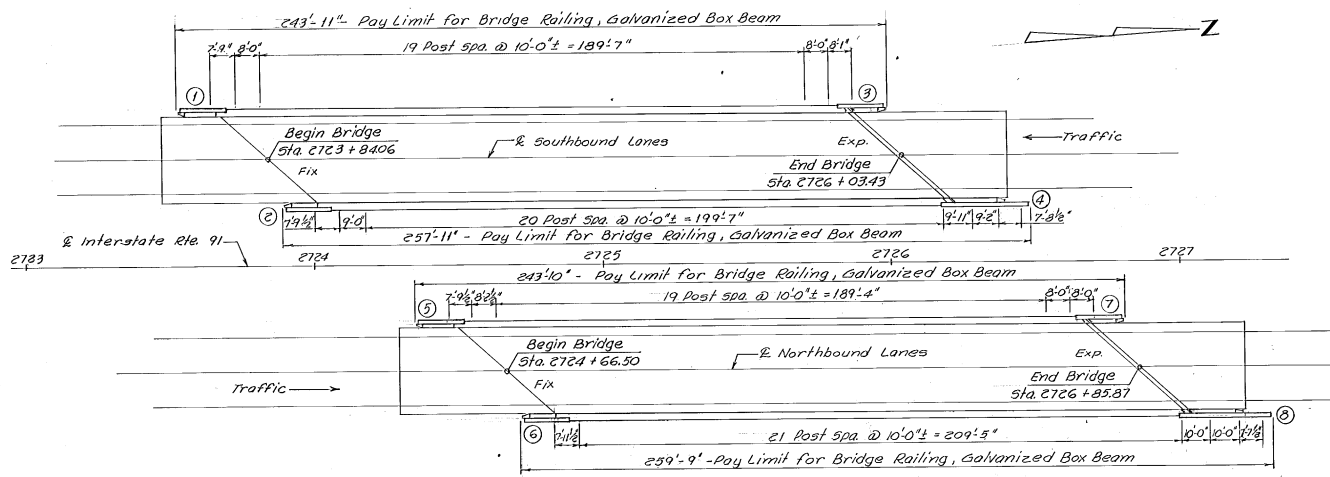 243'-11" - Pay Limit for Bridge Railing, Galvanized Box Beam
7'-9" 8'-0" 19 Post Spa. @ 10'-0"± = 189'-7" 8'-0" 8'-1"
Z
1
3
Begin Bridge
Sta. 2723 + 84.06
Fix
℄ Southbound Lanes
Exp.
End Bridge
Sta. 2726 + 03.43
Traffic
2
4
7'-9½" 9'-0" 20 Post Spa. @ 10'-0"± = 199'-7" 9'-11" 9'-2" 7'-8½"
257'-11" - Pay Limit for Bridge Railing, Galvanized Box Beam
℄ Interstate Rte. 91
2723 2724 2725 2726 2727
243'-10" - Pay Limit for Bridge Railing, Galvanized Box Beam
7'-9½" 8'-2½" 19 Post Spa. @ 10'-0"± = 189'-4" 8'-0" 8'-0"
5
7
Begin Bridge
Sta. 2724 + 66.50
Fix
℄ Northbound Lanes
Exp.
End Bridge
Sta. 2726 + 85.87
Traffic
6
8
7'-11½" 21 Post Spa. @ 10'-0"± = 209'-5" 10'-0" 10'-0" 7'-7½"
259'-9" - Pay Limit for Bridge Railing, Galvanized Box Beam